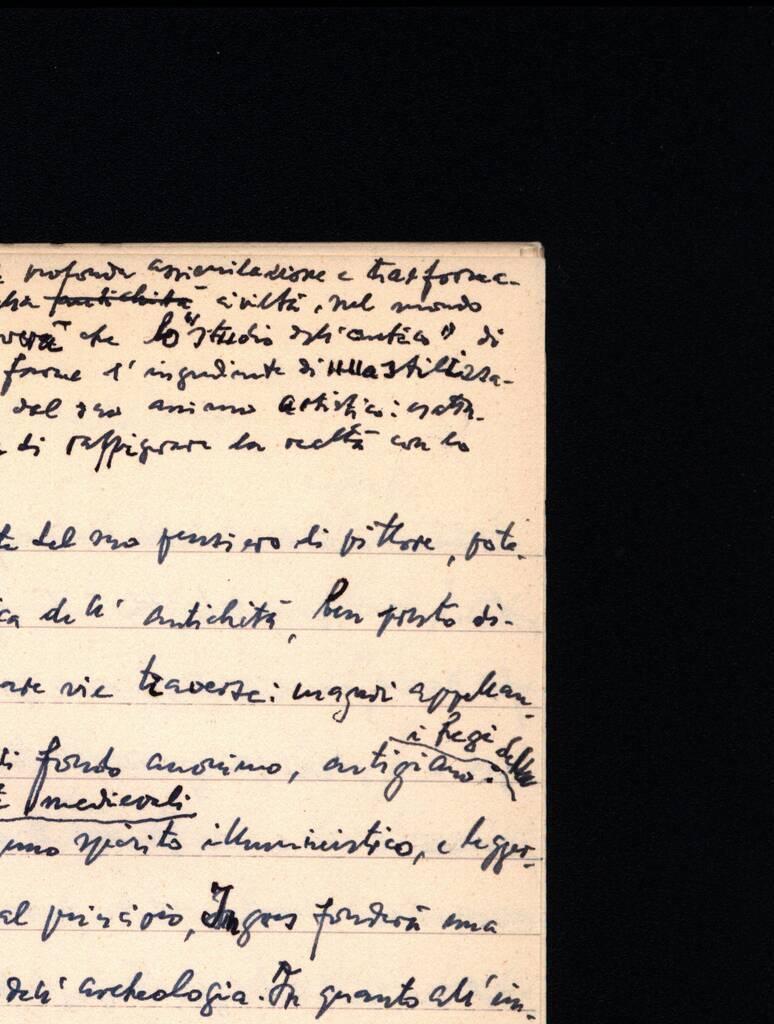 profonda assimilazione e trasforma-
antichità civiltà, nel mondo
che lo "studio dell'antico" di
forme l'ingrediente di una stilizza-
dal suo animo artistico: esatta-
di raffigurare la realtà con lo
del suo pensiero di pittore, pote-
ca dell'antichità, ben presto di-
are vie traverse: magari appellan-
i fregi delle
di fondo anonimo, artigiano:
medievali
uno spirito illuministico, e legger-
al principio, Ingres fonderà una
dell'archeologia. In quanto all'im-